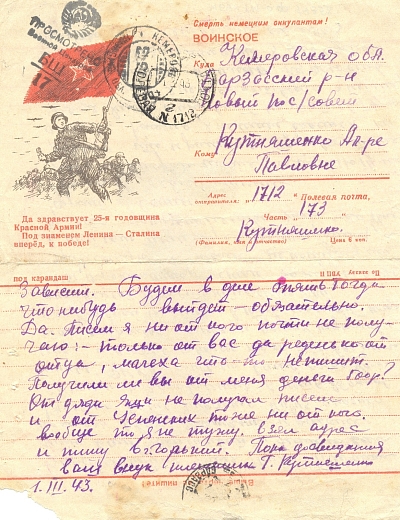 Смерть немецким оккупантам!
ВОИНСКОЕ
ПРОСМОТРЕНО
КЕМЕРОВО
Куда Кемеровская обл.
р-н
пос/совет
Кому Кутняшенко Ал-ре
Павловне
Адрес отправителя: 1712 Полевая почта,
Часть 173
(Фамилия, имя и отчество) Цена 6 коп.
Да здравствует 25-я годовщина
Красной Армии!
Под знаменем Ленина – Сталина
вперёд, к победе!
под карандаш
Зависеми. Будем в две тогда
что нибудь выйдет – обязательно.
Да. Писем я ни от кого почти не полу-
чаю: – только от вас да редко от
отца, мачеха что-то не пишет.
Получили ли вы от меня деньги 600р?
От дяди Яши не получал писем
и от Успенских тоже ни от кого.
вообще то я не тужу. Взял адрес
и пишу в г. Горький. Пока досвидания
ваш внук Г. Кутняшенко
1.III.43.